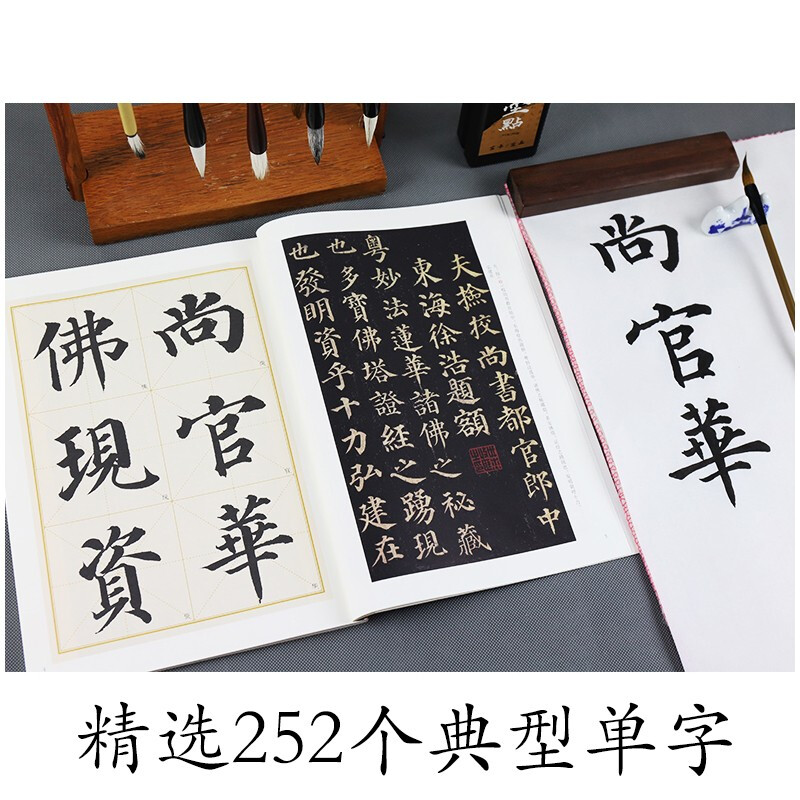 尚官華
佛現資
夫撿挍尚書都官郎中
東海徐浩題額
粤妙法蓮華諸佛之秘藏
也多寶佛塔證經之踴現
也發明資乎十力弘建在
點
尚官華
精选252个典型单字